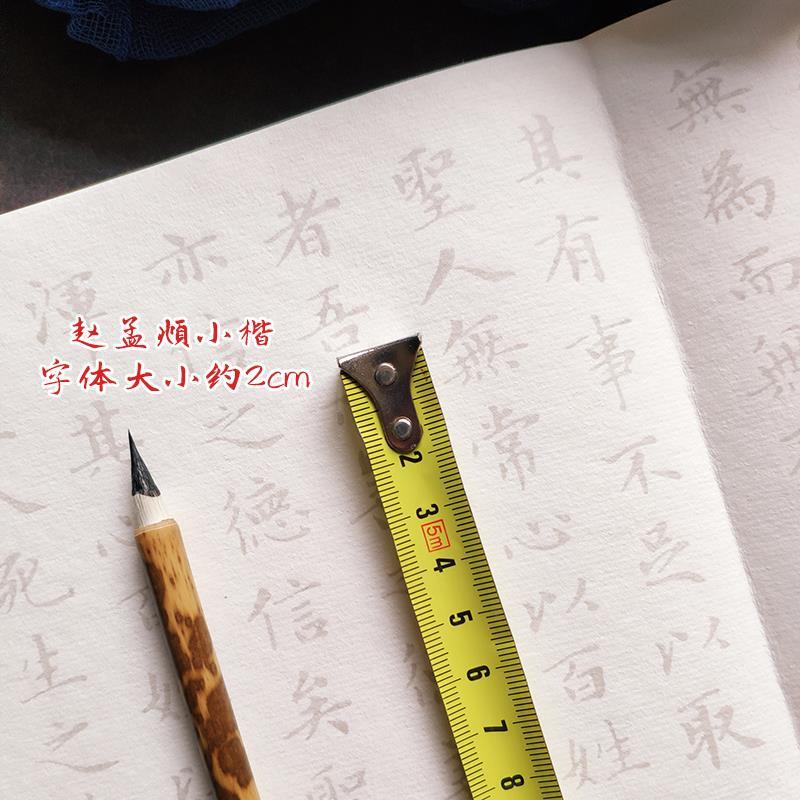 赵孟頫小楷
字体大小约2cm
無為而無
其有事不足以取
聖人無常心以百姓
者吾
亦信之德信矣聖
渾其心
死生之
2
3
5m
4
5
6
7
8